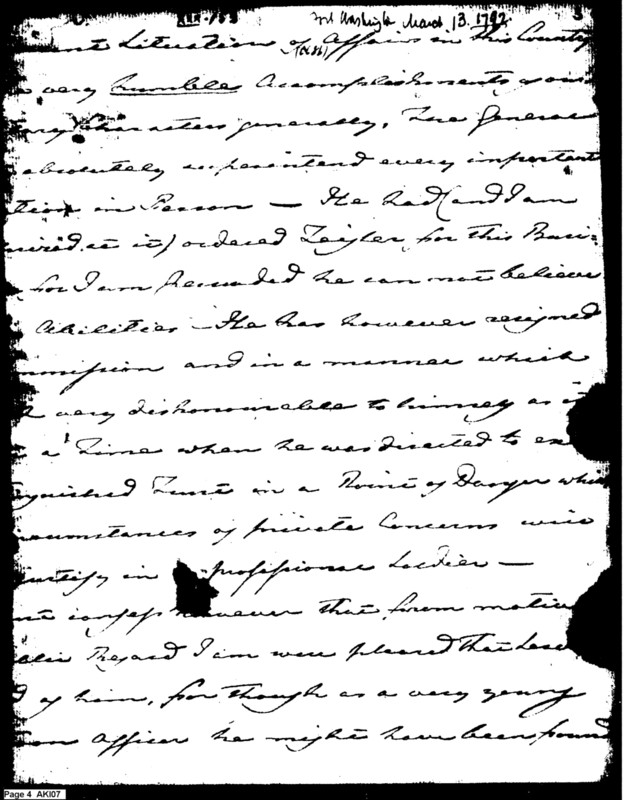 Fort Washington March 13. 1792.
Situation of Affairs in this County
(and)
very humble Accomplishments of our
Characters generally, The General
absolutely superintend every important
in Person — He had (and I am
at it) ordered Zeigler for this Busi-
for I am persuaded he can not believe
Abilities — He has however resigned
mmission and in a manner which
very dishonourable to himself as it
a Time when he was directed to ex
nguished Trust in a Point of Danger which
cumstances of private Concerns will
justify in professional Soldier —
confess however that from motiv
Regard I am well pleased that
of him, for though as a very young
Officer he might have been found
Page 4 AKI07